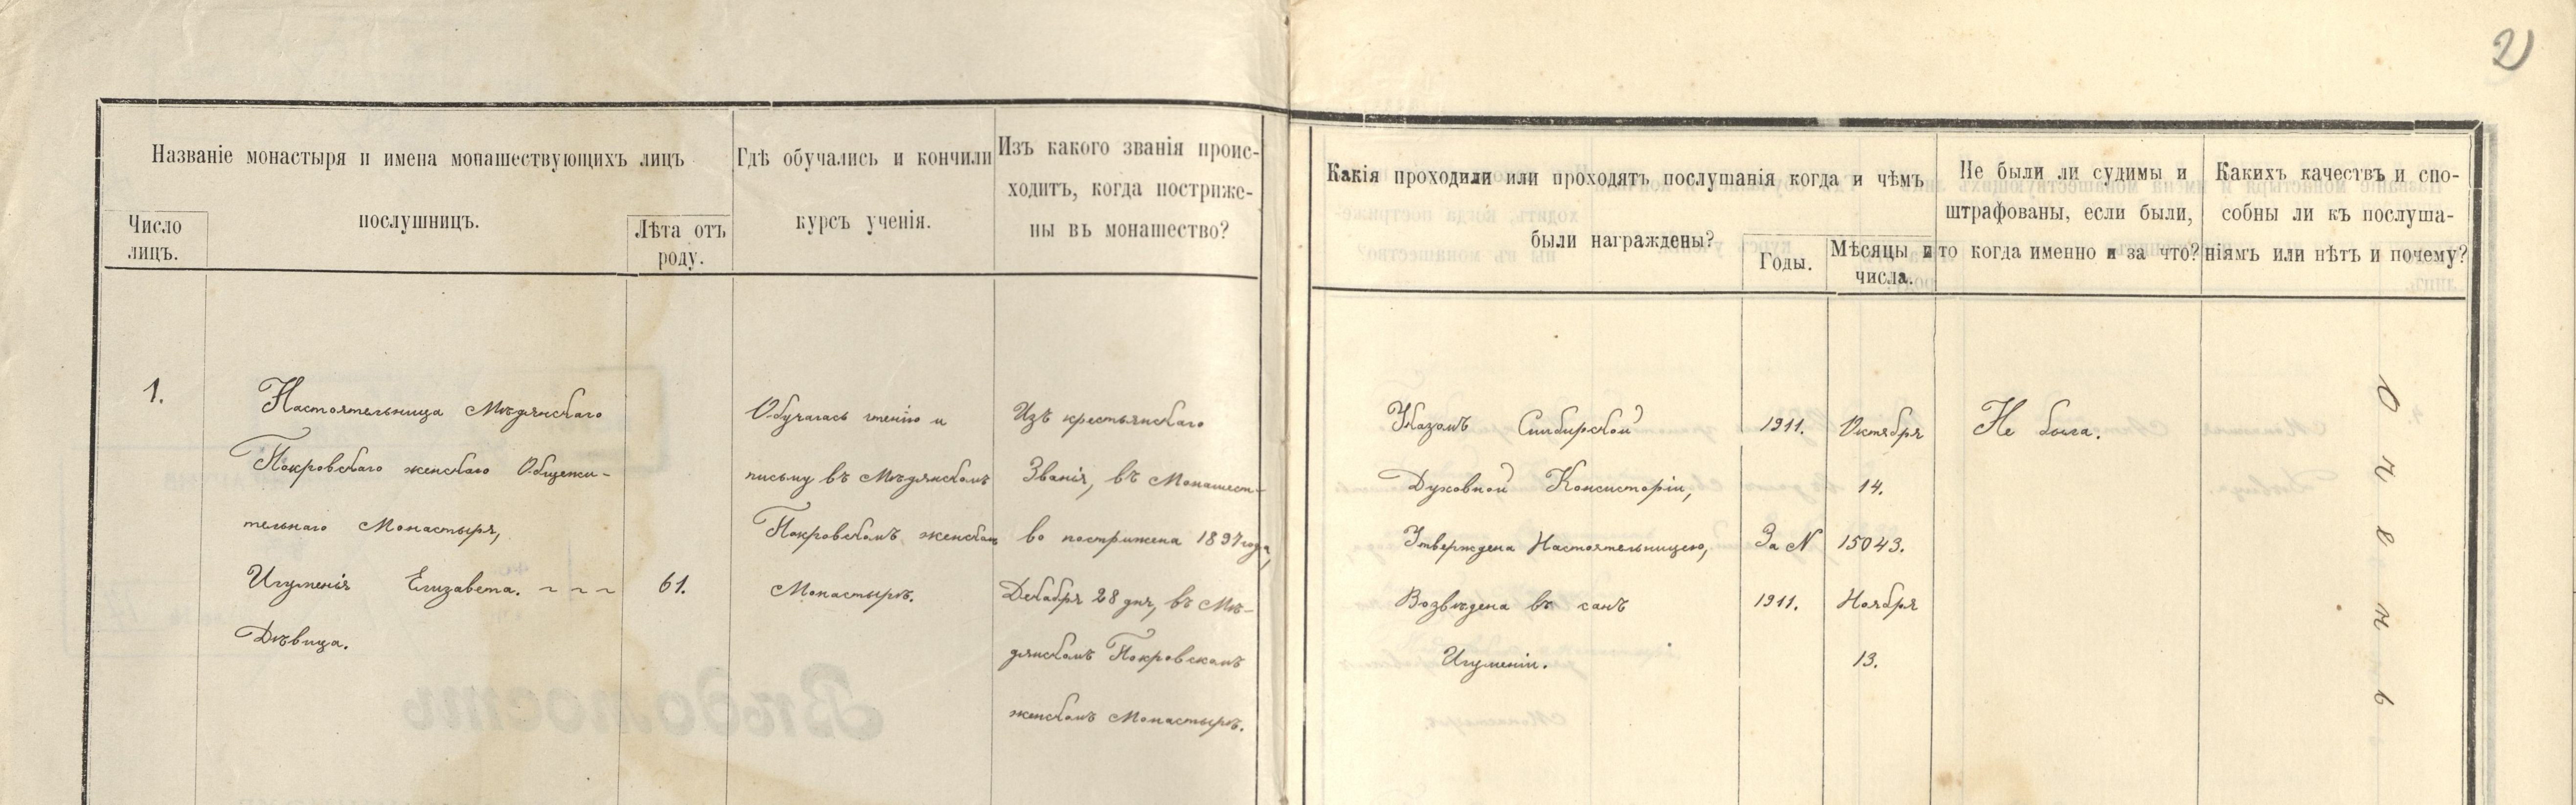 2
Названіе монастыря и имена монашествующихъ лицъ
послушницъ.
Число
лицъ.
Лѣта отъ
роду.
Гдѣ обучались и кончили
курсъ ученія.
Изъ какого званія проис-
ходитъ, когда постриже-
ны въ монашество?
Какія проходили или проходятъ послушанія когда и чѣмъ
были награждены?
Годы.
Мѣсяцы и
числа.
Не были ли судимы и
штрафованы, если были,
то когда именно и за что?
Какихъ качествъ и спо-
собны ли къ послуша-
ніямъ или нѣтъ и почему?
1.
Настоятельница Мѣдянскаго
Покровскаго женскаго Общежи-
тельнаго Монастыря,
Игуменія Елизавета. ~ ~ ~
Дѣвица.
61.
Обучалась чтенію и
письму въ Мѣдянскомъ
Покровскомъ женском
Монастырѣ.
Изъ крестьянскаго
Званія, въ Монашест-
во пострижена 1897 года,
Декабря 28 дня, въ Мѣ-
дянскомъ Покровскомъ
женскомъ Монастырѣ.
Указомъ Симбирской
Духовной Консисторіи,
Утверждена Настоятельницею,
Возведена въ санъ
Игуменіи.
1911.
За №
1911.
Октября
14.
15043.
Ноября
13.
Не была.